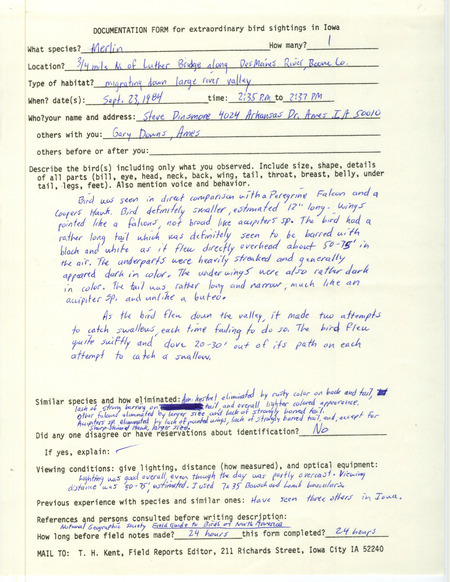 DOCUMENTATION FORM for extraordinary bird sightings in Iowa
What species? Merlin How many? 1
Location? 3/4 mile N. of Luther Bridge along Des Moines River, Boone Co.
Type of habitat? migrating down large river valley
When? date(s): Sept. 23, 1984 time: 2:35 P.M. to 2:37 P.M.
Who?your name and address: Steve Dinsmore 4024 Arkansas Dr. Ames IA 50010
others with you: Gary Downs, Ames
others before or after you:
Describe the bird(s) including only what you observed. Include size, shape, details
of all parts (bill, eye, head, neck, back, wing, tail, throat, breast, belly, under
tail, legs, feet). Also mention voice and behavior.
Bird was seen in direct comparison with a Peregrine Falcon and a
Coopers Hawk. Bird definitely smaller, estimated 12" long. Wings
pointed like a falcons, not broad like accipiters sp. The bird had a
rather long tail which was definitely seen to be barred with
black and white as it flew directly overhead about 50-75' in
the air. The underparts were heavily streaked and generally
appeared dark in color. The underwings were also rather dark
in color. The tail was rather long and narrow, much like an
accipiter sp. and unlike a buteo.
As the bird flew down the valley, it made two attempts
to catch swallows, each time failing to do so. The bird flew
quite swiftly and dove 20-30' out of its path on each
attempt to catch a swallow.
Similar species and how eliminated: Am. kestrel eliminated by rusty color on back and tail,
lack of strong barring on tail, and overall lighter colored appearance.
Other falcons eliminated by larger size and lack of strongly barred tail.
Accipiters sp. eliminated by lack of pointed wings, lack of strongly barred tail, and, except for
Sharp-shinned Hawk, larger size.
Did any one disagree or have reservations about identification? No
If yes, explain:
Viewing conditions: give lighting, distance (how measured), and optical equipment:
Lighting was good overall, even though the day was partly overcast. Viewing
distance was 50-75', estimated. I used 7x35 Bausch and Lomb binoculars.
Previous experience with species and similar ones: Have seen three others in Iowa.
References and persons consulted before writing description:
National Geographic Society Field Guide to Birds of North America
How long before field notes made? 24 hours this form completed? 24 hours
MAIL TO: T. H. Kent, Field Reports Editor, 211 Richards Street, Iowa City IA 52240